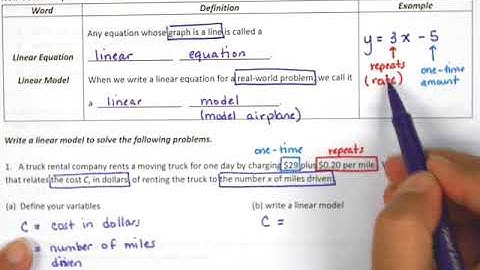 Word Definition Example
Any equation whose graph is a line is called a
Linear Equation linear equation.
y = 3x - 5
repeats
(rate)
one-time
amount
Linear Model When we write a linear equation for a real-world problem, we call it
a linear model.
(model airplane)
Write a linear model to solve the following problems.
one-time repeats
1. A truck rental company rents a moving truck for one day by charging $29 plus $0.20 per mile.
that relates the cost C, in dollars, of renting the truck to the number x of miles driven.
(a) Define your variables (b) write a linear model
C = cost in dollars C =
= number of miles
driven